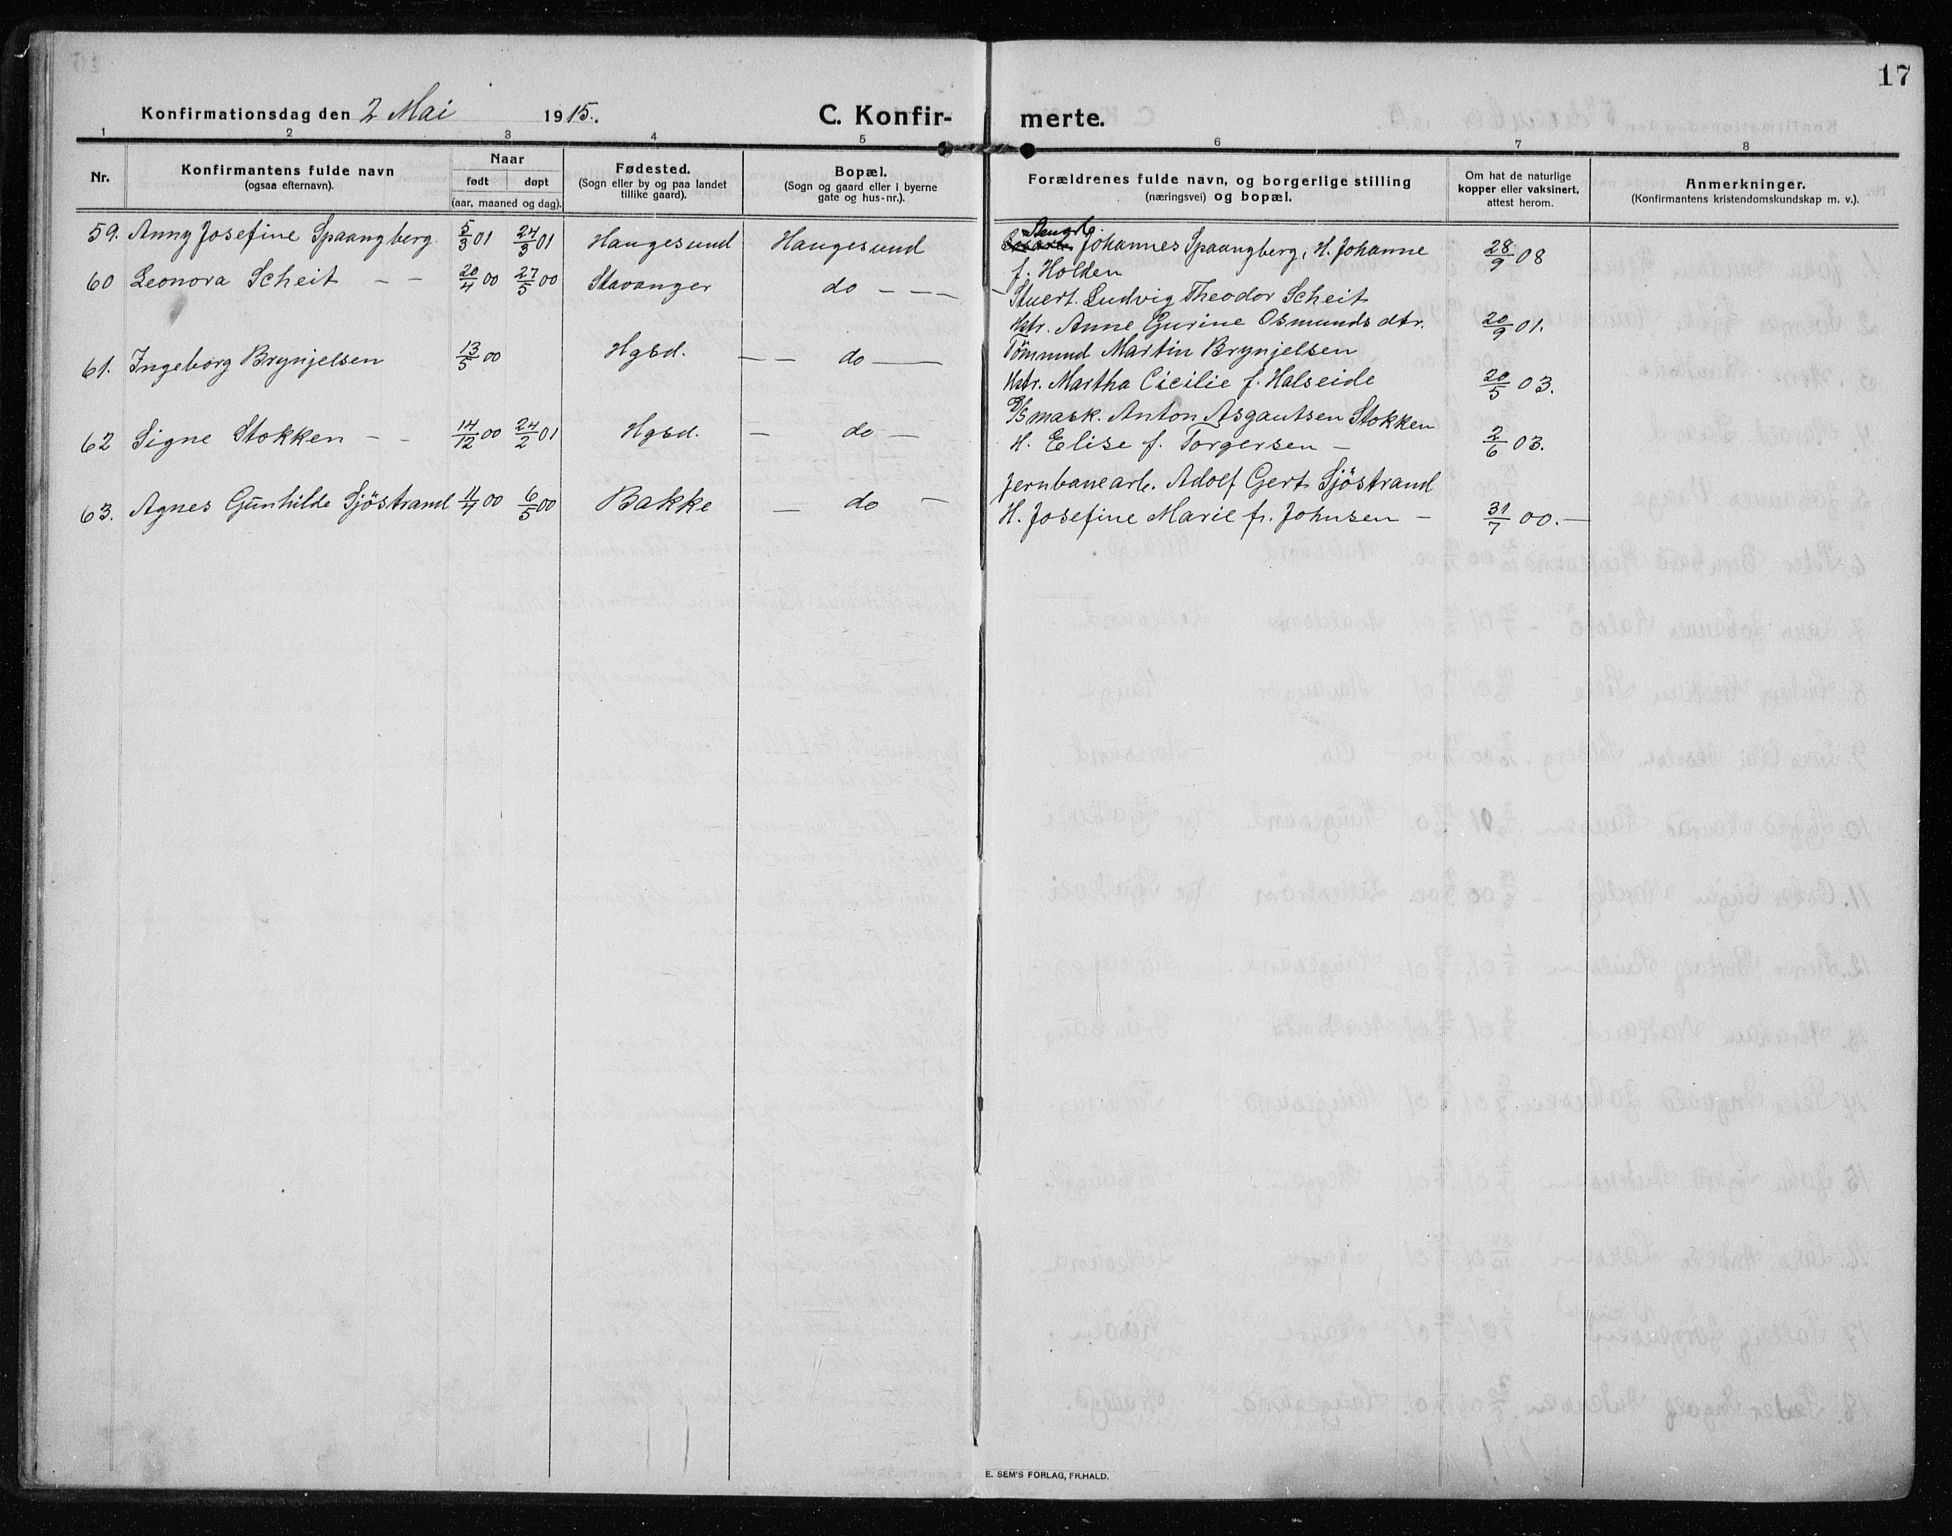 17
Konfirmationsdag den 2 Mai 1915. C. Konfir- merte.
1 2 3 4 5 6 7 8
Nr. Konfirmantens fulde navn (ogsaa efternavn). Naar født døpt (aar, maaned og dag). Fødested. (Sogn eller by og paa landet tillike gaard). Bopæl. (Sogn og gaard eller i byerne gate og hus-nr.). Forældrenes fulde navn, og borgerlige stilling (næringsvei) og bopæl. Om hat de naturlige kopper eller vaksinert, attest herom. Anmerkninger. (Konfirmantens kristendomskundskap m. v.).
59. Anny Josefine Spaangberg. 5/3 01 24/3 01 Haugesund Haugesund Johannes Spaangberg, H. Johanne 28/9 08
f. Holden
60 Leonora Scheit - - 20/4 00 27/5 00 Stavanger do - - - Stuert. Ludvig Theodor Scheit
Hstr. Anne Gurine Osmundsdtr. 20/9 01.
61. Ingeborg Brynjelsen 13/5 00 Hgsd. - - do - Tømmnd Martin Brynjelsen
Hstr. Martha Cicilie f. Halseide 20/5 03.
62 Signe Stokken - - 14/12 00 24/2 01 Hgsd. - do - D/S mask. Anton Asgautsen Stokken
H. Elise f. Torgersen - 2/6 03.
63. Agnes Gunhilde Sjöstrand 11/4 00 6/5 00 Bakke - do - Jernbanearb. Adolf Gert Sjöstrand
H. Josefine Marie f. Johnsen - 31/7 00. -
E. SEM'S FORLAG, FR.HALD.